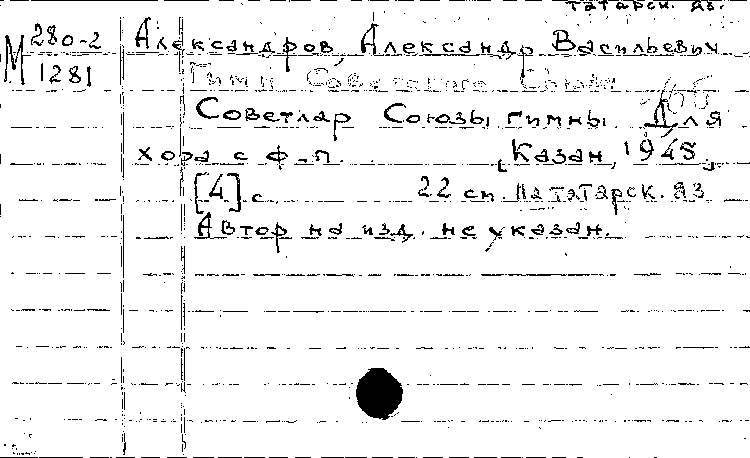 татарск. яз.
М 280-2
1281
Александров, Александр Васильевич
Гимн Советского Союза
Советлар Союзы гимны. Для
хора с ф.-п. [Казан, 1945].
[4] с. 22 см. На татарск. яз
Автор на изд. не указан.